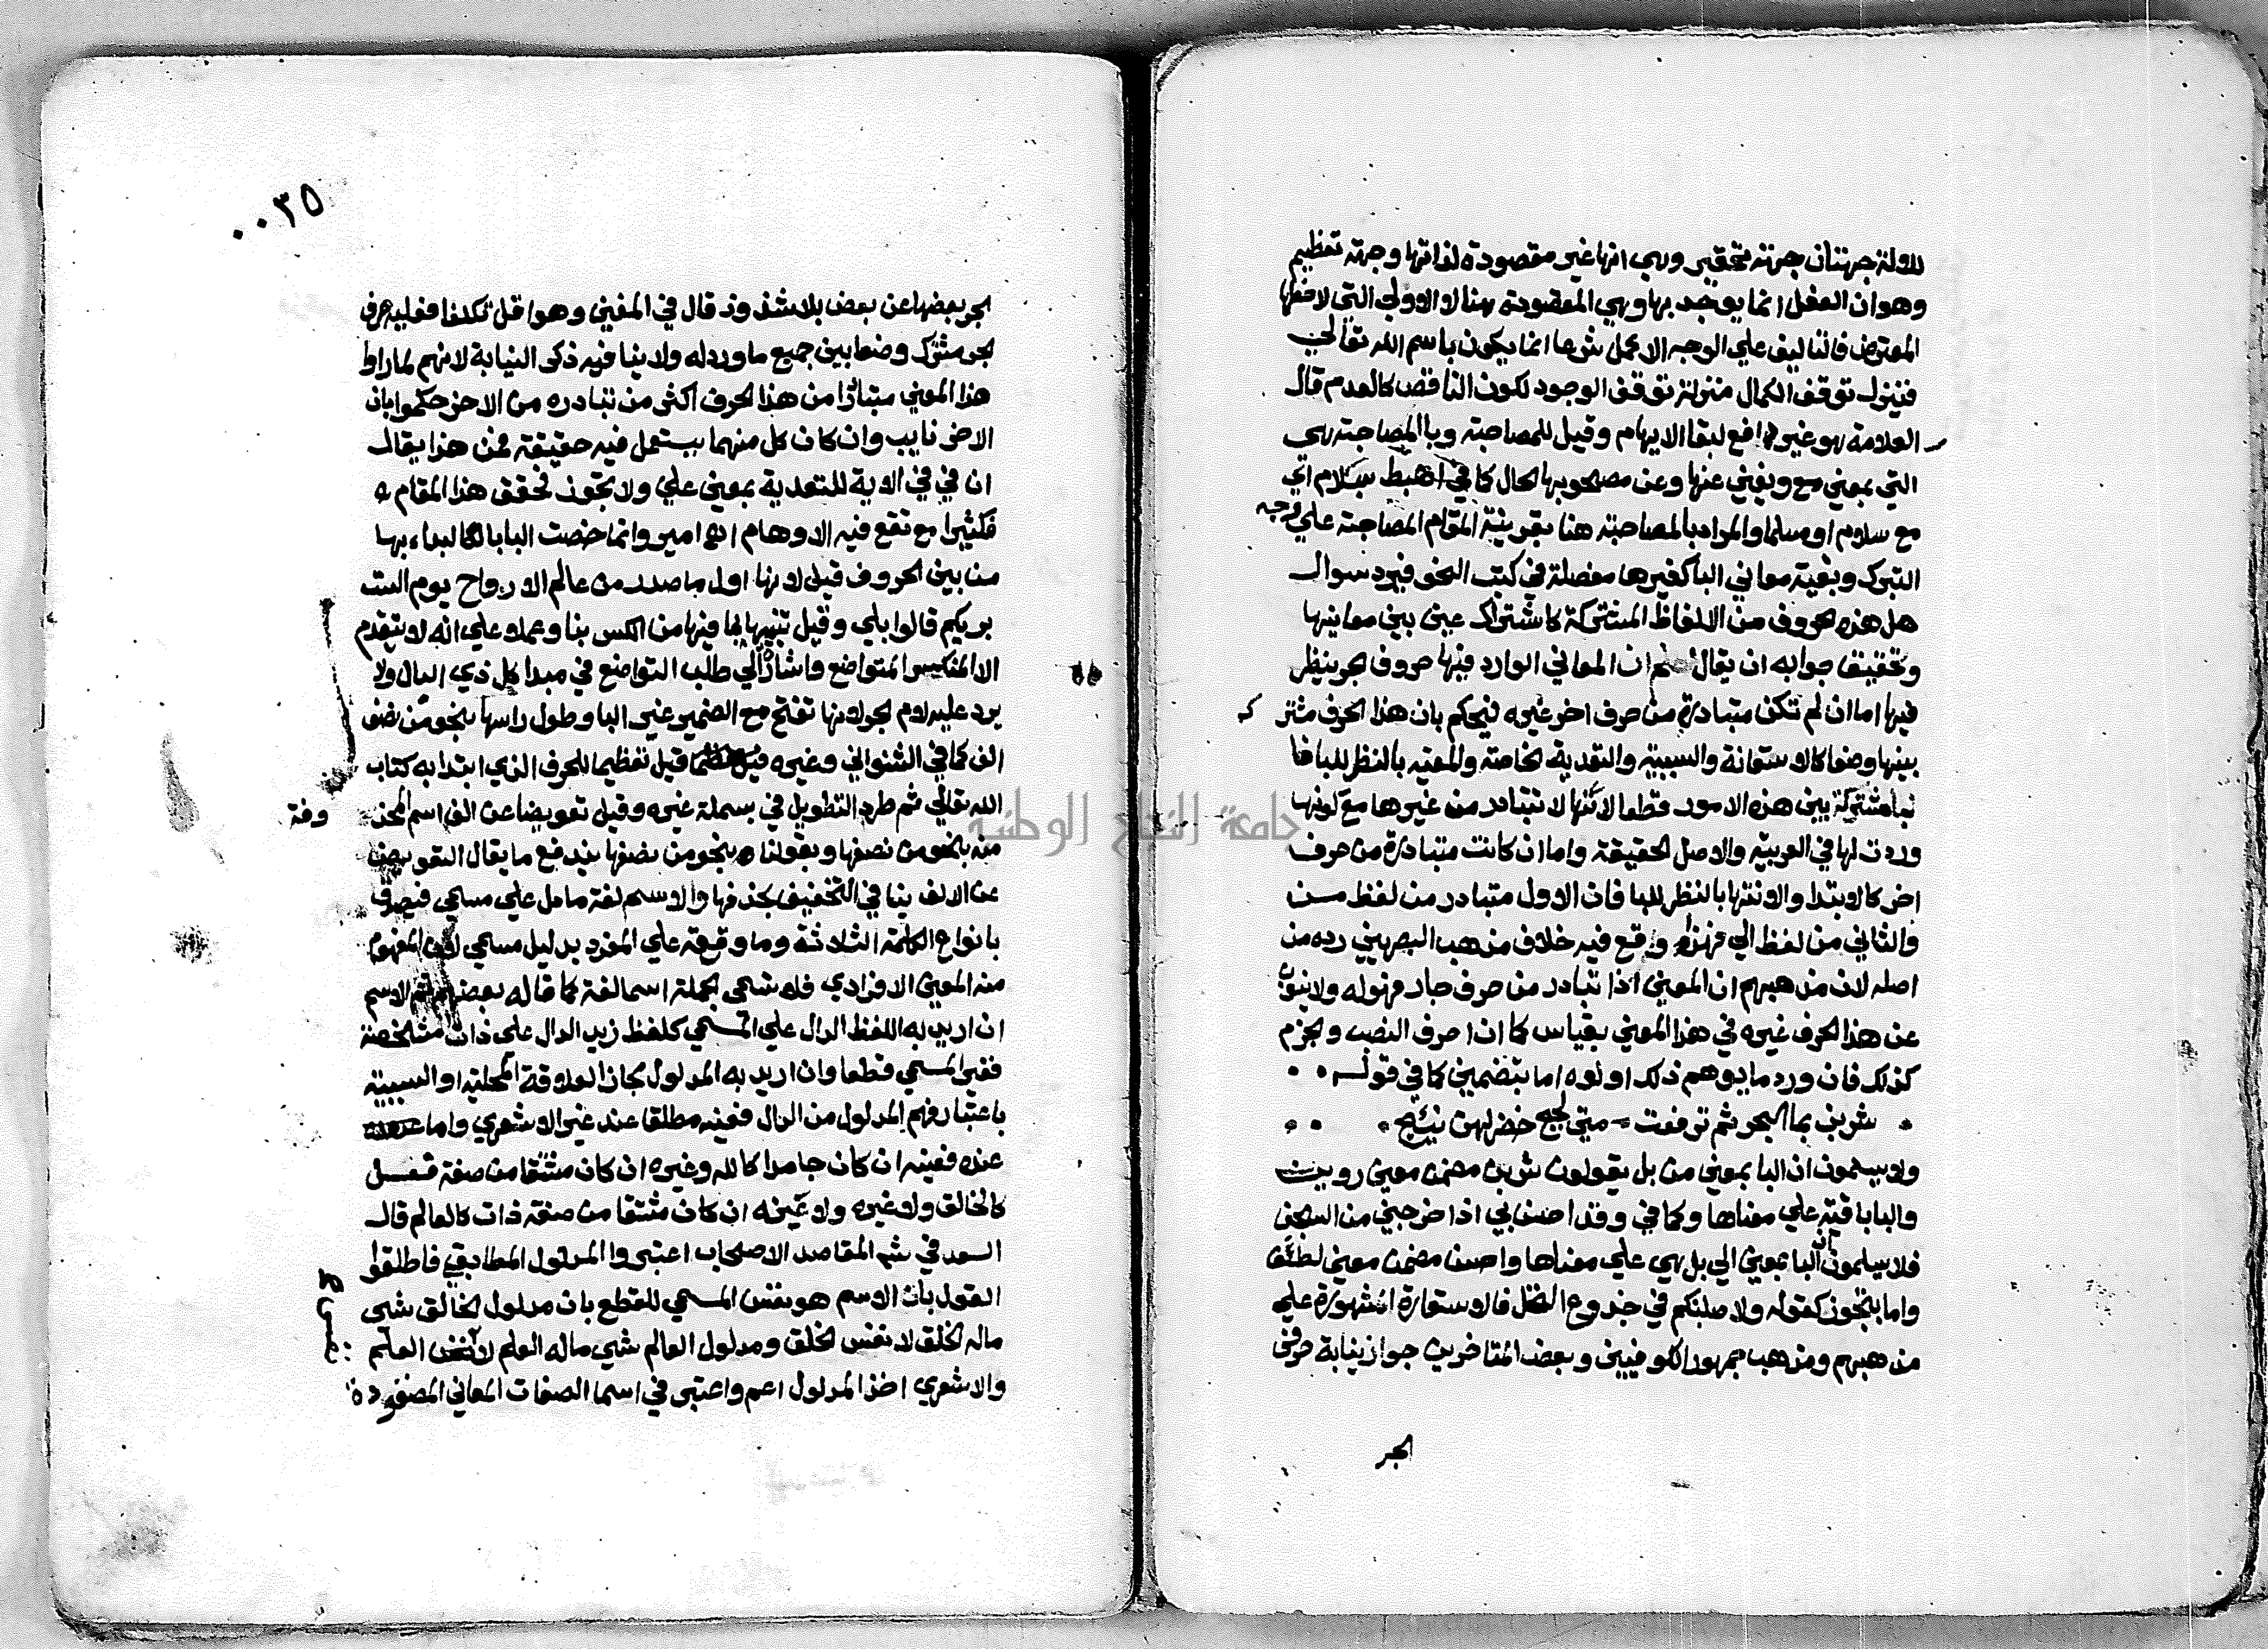 للآلة جهتان جهة تحقير وهي انها غير مقصودة لذاتها وجهة تعظيم
وهو ان الفعل انما يوجد بها وهي المقصودة هنا لا الاولي التي لاحظها
المعترض فالتاليف علي الوجه الاكمل شرعا انما يكون باسم الله تعالي
فتنزل توقف الكمال منزلة توقف الوجود لكون الناقص كالعدم قال
العلامة هو غير دافع لبقا الايهام وقيل للمصاحبة وبا المصاحبة هي
التي بمعني مع ويغني عنها وعن مصحوبها الحال كما في اهبط بسلام اي
مع سلام او مسلما والمراد بالمصاحبة هنا بقرينة المقام المصاحبة علي وجه
التبرك وبقية معاني البا كغيرها مفصلة في كتب النحو فيرد سوال
هل هذه حروف من الالفاظ المشتركة كاشتراك عين بين معانيها
وتحقيق جوابه ان يقال ان المعاني الوارد فيها حروف الجر ينظر
فيها اما ان لم تكن متبادرة من حرف اخر غيره فيحكم بان هذا الحرف مشتر ك
بينها وضعا كالاستعانة والسببية والتعدية الخاصة والمعية بالنظر للبا فا
نها مشتركة بين هذه الامور قطعا لانها لا تتبادر من غيرها مع كونها
وردت لها في العربية والاصل الحقيقة واما ان كانت متبادرة من حرف
اخر كالابتدا والانتها بالنظر للبا فان الاول متبادر من لفظ من
والثاني من لفظ الي فهذا وقع فيه خلاف مذهب البصريين رده من
اصله لان مذهبهم ان المعني اذا تبادر من حرف جار فهو له ولا ينوب
عن هذا الحرف غيره في هذا المعني بقياس كما ان احرف النصب والجزم
كذلك فان ورد ما يوهم ذلك اولوه اما بتضمين كما في قوله
شربن بما البحر ثم ترفعت متي لجج خضر لهن نئيج
ولا يسلمون ان البا بمعني من بل يقولون شربن مضمن معني روين
والبا باقية علي معناها وكما في وقد احسن بي اذ اخرجني من السجن
فلا يسلمون ان البا بمعني الي بل هي علي معناها واحسن مضمن معني لطف
واما بتجوز كقوله ولاصلبنكم في جذوع النخل فالاستعارة مشهورة علي
مذهبهم ومذهب جمهور الكوفيين وبعض المتاخرين جواز نيابة حرف
الجر
٠٠٣٥
الجر بعضها عن بعض بلا شذوذ قال في المغني وهو اقل تكلفا فعليه حرف
الجر مشترك وضعا بين جميع ما ورد له ولا ينافيه ذكر النيابة لانهم لما راوا
هذا المعني متبادرا من هذا الحرف اكثر من تبادره من الاخر حكموا بان
الاخر نايب وان كان كل منهما يستعمل فيه حقيقة فمن هذا يقال
ان في في الاية للتعدية بمعني علي ولا تجوز فحقق هذا المقام
فكثيرا مع تقع فيه الاوهام امير وانما خصت البا بالابتداء بها
من بين الحروف قيل لانها اول ما صدر من عالم الارواح يوم الست
بربكم قالوا بلي وقيل تنبيها لما فيها من الكسر بنا وعملا علي انه لا يتقدم
الا المنكسر المتواضع واشارة الي طلب التواضع في مبدا كل ذي البال ولا
يرد عليه لام الجر لانها تفتح مع الضمير غير اليا وطول راسها بنحو من نصف
الف كما في الشنواني وغيره قيل تعظيما للحرف الذي ابتدا به كتاب
الله تعالي ثم طرد التطويل في بسملة غيره وقيل تعويضا عن الف اسم المحذ وفة
منه بنحو من نصفها وبقولنا بنحو من نصفها يندفع ما يقال التعويض
عن الالف ينافي التخفيف بحذفها والاسم لغة ما دل علي مسمي فيصدق
بانواع الكلمة الثلاثة وما وقع علي المفرد بدليل مسمي المفهوم
منه المعني الافرادي فلا تسمي الجملة اسما لغة كما قاله بعضهم ثم الاسم
ان اريد به اللفظ الدال علي المسمي كلفظ زيد الدال علي ذات مشخصة
فغير المسمي قطعا وان اريد به المدلول مجاز العلاقة المحلية او السببية
باعتبار فهم المدلول من الدال فعينه مطلقا عند غير الاشعري واما
عنده فعينه ان كان جامدا كالله وغيره ان كان مشتقا من صفة فعل
كالخالق ولا غيره ولا عينه ان كان مشتقا من صفة ذات كالعالم قال
السعد في شرح المقاصد الاصحاب اعتبروا المدلول المطابقي فاطلقوا
القول بان الاسم هو نفس المسمي للقطع بان مدلول الخالق شي
ماله الخلق لا نفس الخلق ومدلول العالم شي ماله العلم لا نفس العلم
والاشعري اخذ المدلول اعم واعتبر في اسما الصفات المعاني المقصودة